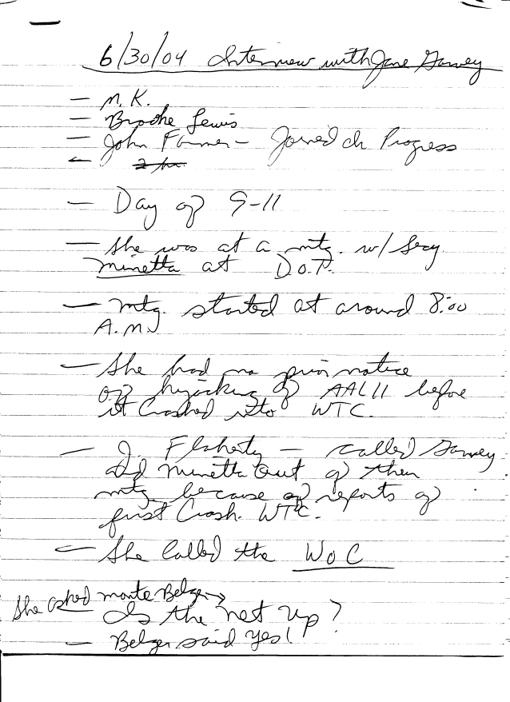 6/30/04 Interview with Jane Garvey
— M.K.
— Brooke Lewis
— John Farmer – Joined in Progress
— 2 hr
— Day of 9-11
— She was at a mtg. w/ Secy
Minetta at D.O.T.
— mtg. started at around 8:00
A.M.
— She had no prior notice
of hijacking of AAL11 before
it Crashed into WTC.
— J. Flaherty – called Garvey
and Minetta out of their
mtg because of reports of
first Crash WTC.
— She Called the WOC
She asked Monte Belger →
Is the net up?
— Belger said yes!